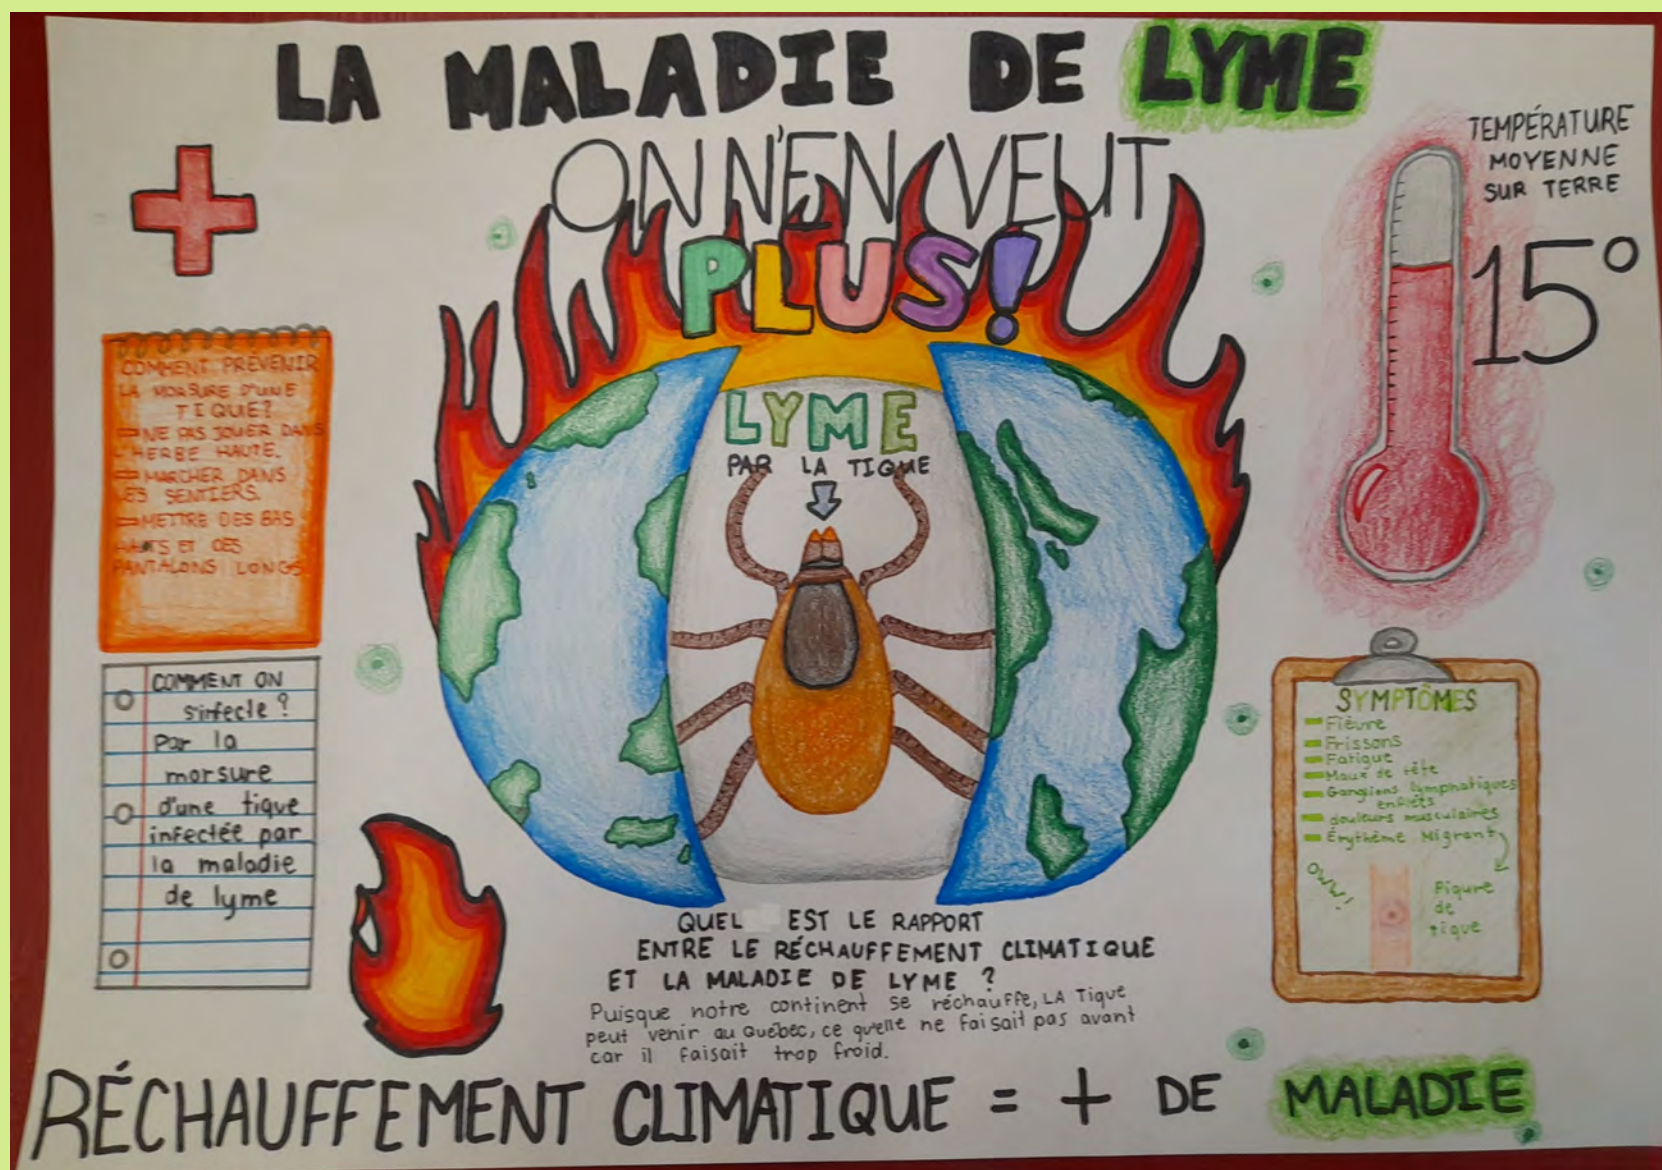 LA MALADIE DE LYME
ON N'EN VEUT
PLUS!
TEMPÉRATURE
MOYENNE
SUR TERRE
15°
COMMENT PRÉVENIR
LA MORSURE D'UNE
TIQUE?
⇨NE PAS JOUER DANS
L'HERBE HAUTE.
⇨MARCHER DANS
LES SENTIERS.
⇨METTRE DES BAS
HAUTS ET DES
PANTALONS LONGS.
LYME
PAR LA TIQUE
COMMENT ON
s'infecte ?
Par la
morsure
d'une tique
infectée par
la maladie
de lyme
SYMPTÔMES
Fièvre
Frissons
Fatigue
Maux de tête
Ganglions lymphatiques
enflés
douleurs musculaires
Érythème Migrant
OWW!
Piqure
de
tique
QUEL EST LE RAPPORT
ENTRE LE RÉCHAUFFEMENT CLIMATIQUE
ET LA MALADIE DE LYME ?
Puisque notre continent se réchauffe, LA Tique
peut venir au Québec, ce qu'elle ne faisait pas avant
car il faisait trop froid.
RÉCHAUFFEMENT CLIMATIQUE = + DE MALADIE